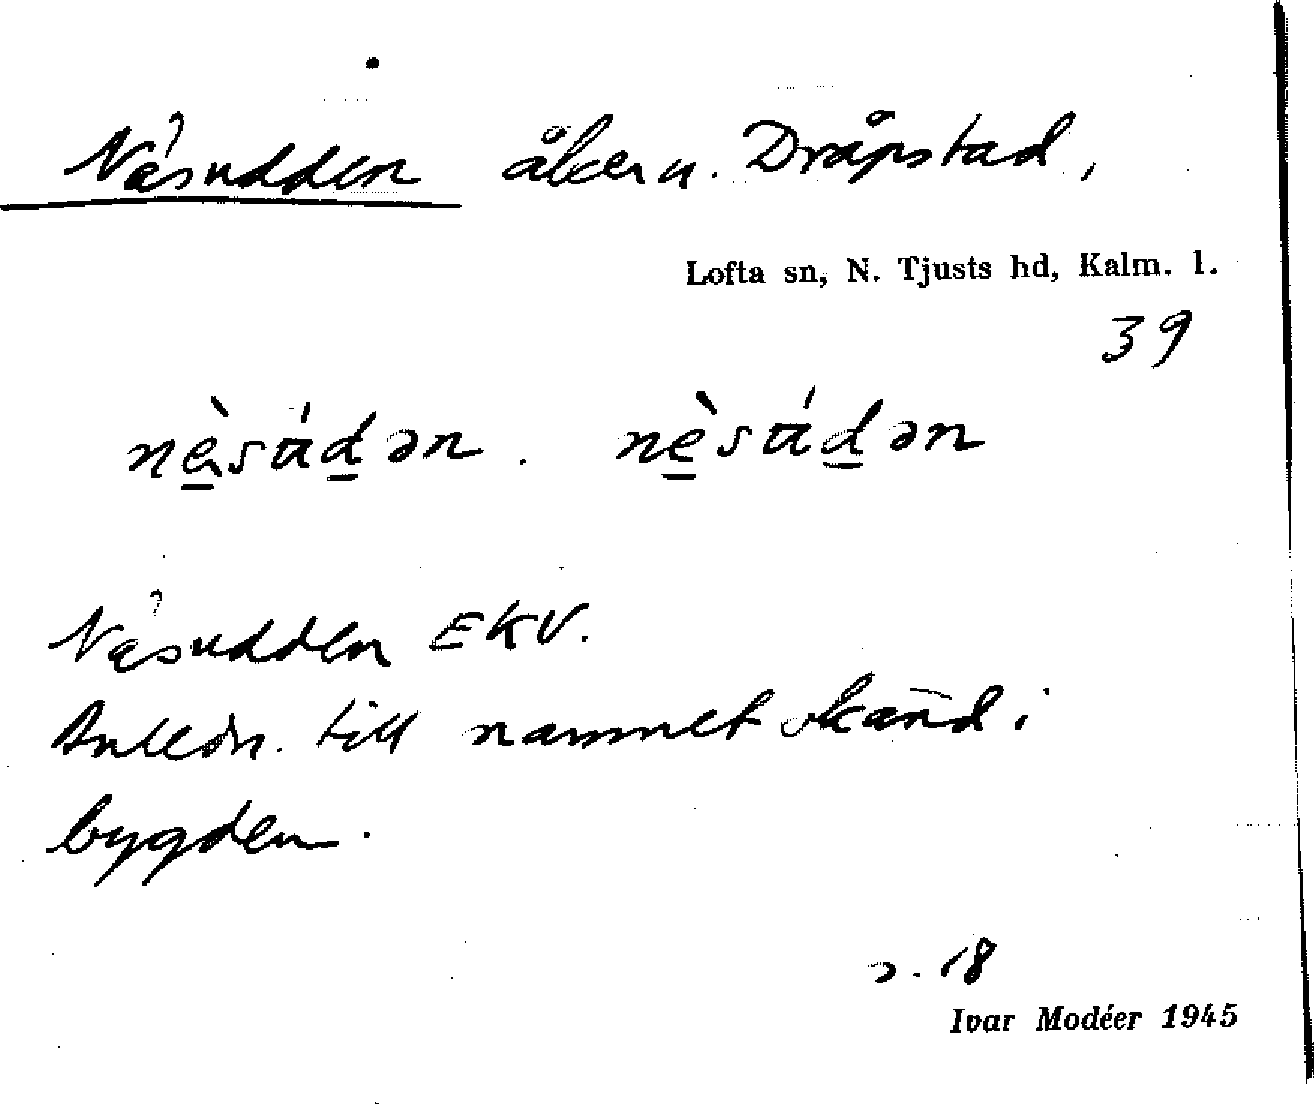 Näsudden åker u. Dråpstad,
Lofta sn, N. Tjusts hd, Kalm. l.
39
nè̱sʉ́ḏən. nè̱sʉ́ḏən
Näsudden EKV.
Anledn. till namnet okänd i
bygden.
s. 18
Ivar Modéer 1945